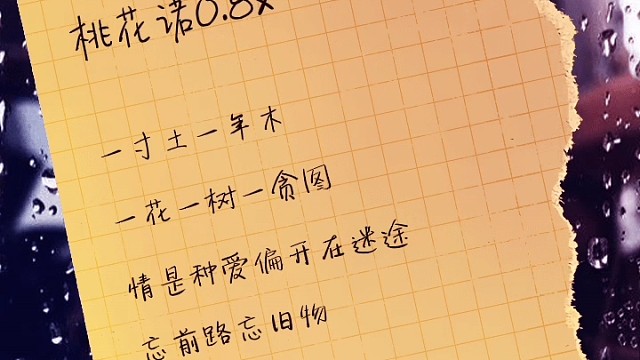 桃花诺0.8x
一寸土一年木
一花一树一贪图
情是种爱偏开在迷途
忘前路忘旧物